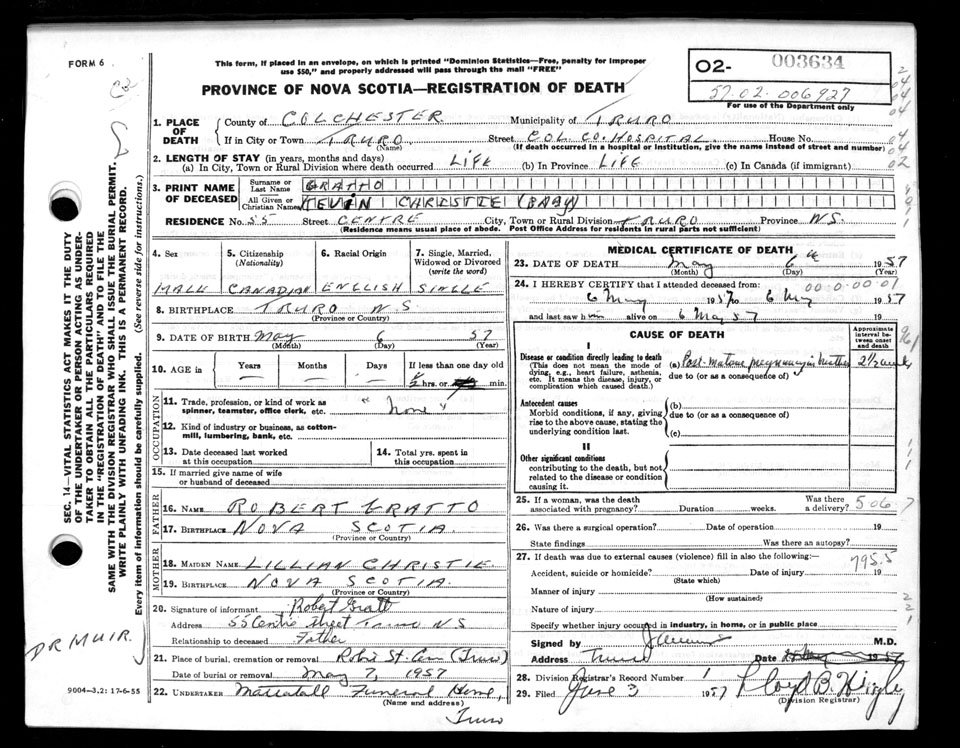 FORM 6
This form, if placed in an envelope, on which is printed "Dominion Statistics—Free, penalty for improper
use $50," and properly addressed will pass through the mail "FREE"
PROVINCE OF NOVA SCOTIA—REGISTRATION OF DEATH
O2- 003634
57.02.006927
For use of the Department only
1. PLACE OF DEATH
County of COLCHESTER Municipality of TRURO
If in City or Town TRURO Street COL. CO. HOSPITAL House No.
(Name) (If death occurred in a hospital or institution, give the name instead of street and number)
2. LENGTH OF STAY (in years, months and days)
(a) In City, Town or Rural Division where death occurred LIFE (b) In Province LIFE (c) In Canada (if immigrant)
3. PRINT NAME OF DECEASED
Surname or Last Name GRATTO
All Given or Christian Names KEVIN CHRISTIE (BABY)
RESIDENCE No. 55 Street CENTRE City, Town or Rural Division TRURO Province N.S.
(Residence means usual place of abode. Post Office Address for residents in rural parts not sufficient)
4. Sex MALE
5. Citizenship (Nationality) CANADIAN
6. Racial Origin ENGLISH
7. Single, Married, Widowed or Divorced (write the word) SINGLE
8. BIRTHPLACE TRURO N.S.
(Province or Country)
9. DATE OF BIRTH May 6 57
(Month) (Day) (Year)
10. AGE in Years Months Days If less than one day old
hrs. or min.
OCCUPATION
11. Trade, profession, or kind of work as
spinner, teamster, office clerk, etc. "None"
12. Kind of industry or business, as cotton-
mill, lumbering, bank, etc.
13. Date deceased last worked
at this occupation
14. Total yrs. spent in
this occupation
15. If married give name of wife
or husband of deceased
FATHER
16. NAME ROBERT GRATTO
17. BIRTHPLACE NOVA SCOTIA
(Province or Country)
MOTHER
18. MAIDEN NAME LILLIAN CHRISTIE
19. BIRTHPLACE NOVA SCOTIA
(Province or Country)
20. Signature of informant Robert Gratto
Address 55 Centre Street Truro N S
Relationship to deceased Father
21. Place of burial, cremation or removal Robie St. Cem (Truro)
Date of burial or removal May 7, 1957
22. UNDERTAKER Mattatall Funeral Home,
(Name and address)
Truro
MEDICAL CERTIFICATE OF DEATH
23. DATE OF DEATH May 6th 1957
(Month) (Day) (Year)
24. I HEREBY CERTIFY that I attended deceased from: 00-0-00-01
6 May 1957 to 6 May 1957
and last saw him alive on 6 May 57 19
CAUSE OF DEATH
Approximate interval between onset and death
I
Disease or condition directly leading to death
(This does not mean the mode of
dying, e.g., heart failure, asthenia,
etc. It means the disease, injury, or
complication which caused death.)
(a) Post-mature pregnancy in mother 2½ weeks
due to (or as a consequence of)
Antecedent causes
Morbid conditions, if any, giving
rise to the above cause, stating the
underlying condition last.
(b)
due to (or as a consequence of)
(c)
II
Other significant conditions
contributing to the death, but not
related to the disease or condition
causing it.
25. If a woman, was the death
associated with pregnancy? Duration weeks. Was there
a delivery? 506
26. Was there a surgical operation? Date of operation 19
State findings Was there an autopsy?
27. If death was due to external causes (violence) fill in also the following:— 795.5
Accident, suicide or homicide? Date of injury 19
(State which)
Manner of injury
(How sustained)
Nature of injury
Specify whether injury occurred in industry, in home, or in public place
Signed by M.D.
Address Truro Date 1957
28. Division Registrar's Record Number 1
29. Filed June 3 1957 Lloyd B. Higby
(Division Registrar)
SEC. 14—VITAL STATISTICS ACT MAKES IT THE DUTY
OF THE UNDERTAKER OR PERSON ACTING AS UNDER-
TAKER TO OBTAIN ALL THE PARTICULARS REQUIRED
IN THE "REGISTRATION OF DEATH" AND TO FILE THE
SAME WITH THE DIVISION REGISTRAR WHO SHALL ISSUE THE BURIAL PERMIT.
WRITE PLAINLY WITH UNFADING INK. THIS IS A PERMANENT RECORD.
Every item of information should be carefully supplied. (See reverse side for instructions.)
DR MUIR
9004—3.2: 17-6-55